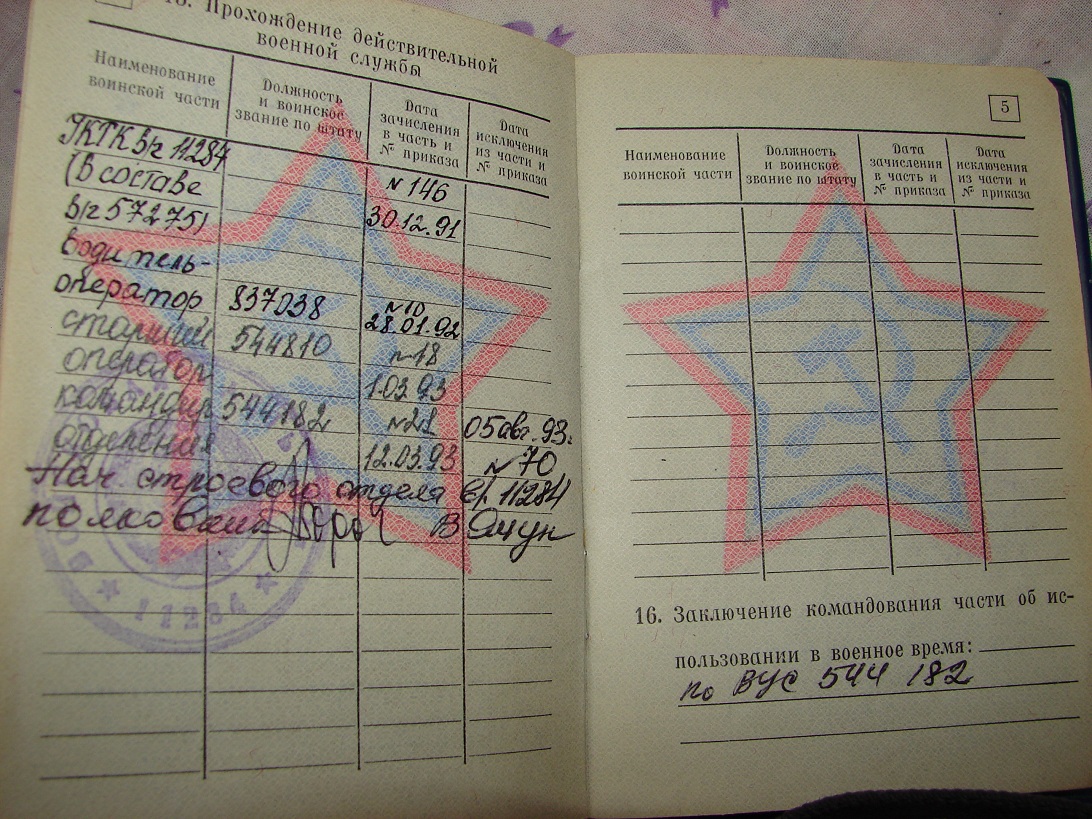 15. Прохождение действительной
военной службы
Наименование
воинской части
Должность
и воинское
звание по штату
Дата
зачисления
в часть и
№ приказа
Дата
исключения
из части и
№ приказа
в/ч 11284
(В составе
N 146
в/ч 57275)
30.12.91
водитель-
оператор 837038 N10
28.01.92
старший 544810 N18
оператор 1.03.93
командир 544182 N21 05 авг. 93г.
отделения 12.03.93 N 70
Нач строевого отдела в/ч 11284
11284
5
Наименование
воинской части
Должность
и воинское
звание по штату
Дата
зачисления
в часть и
№ приказа
Дата
исключения
из части и
№ приказа
16. Заключение командования части об ис-
пользовании в военное время:
по ВУС 544 182